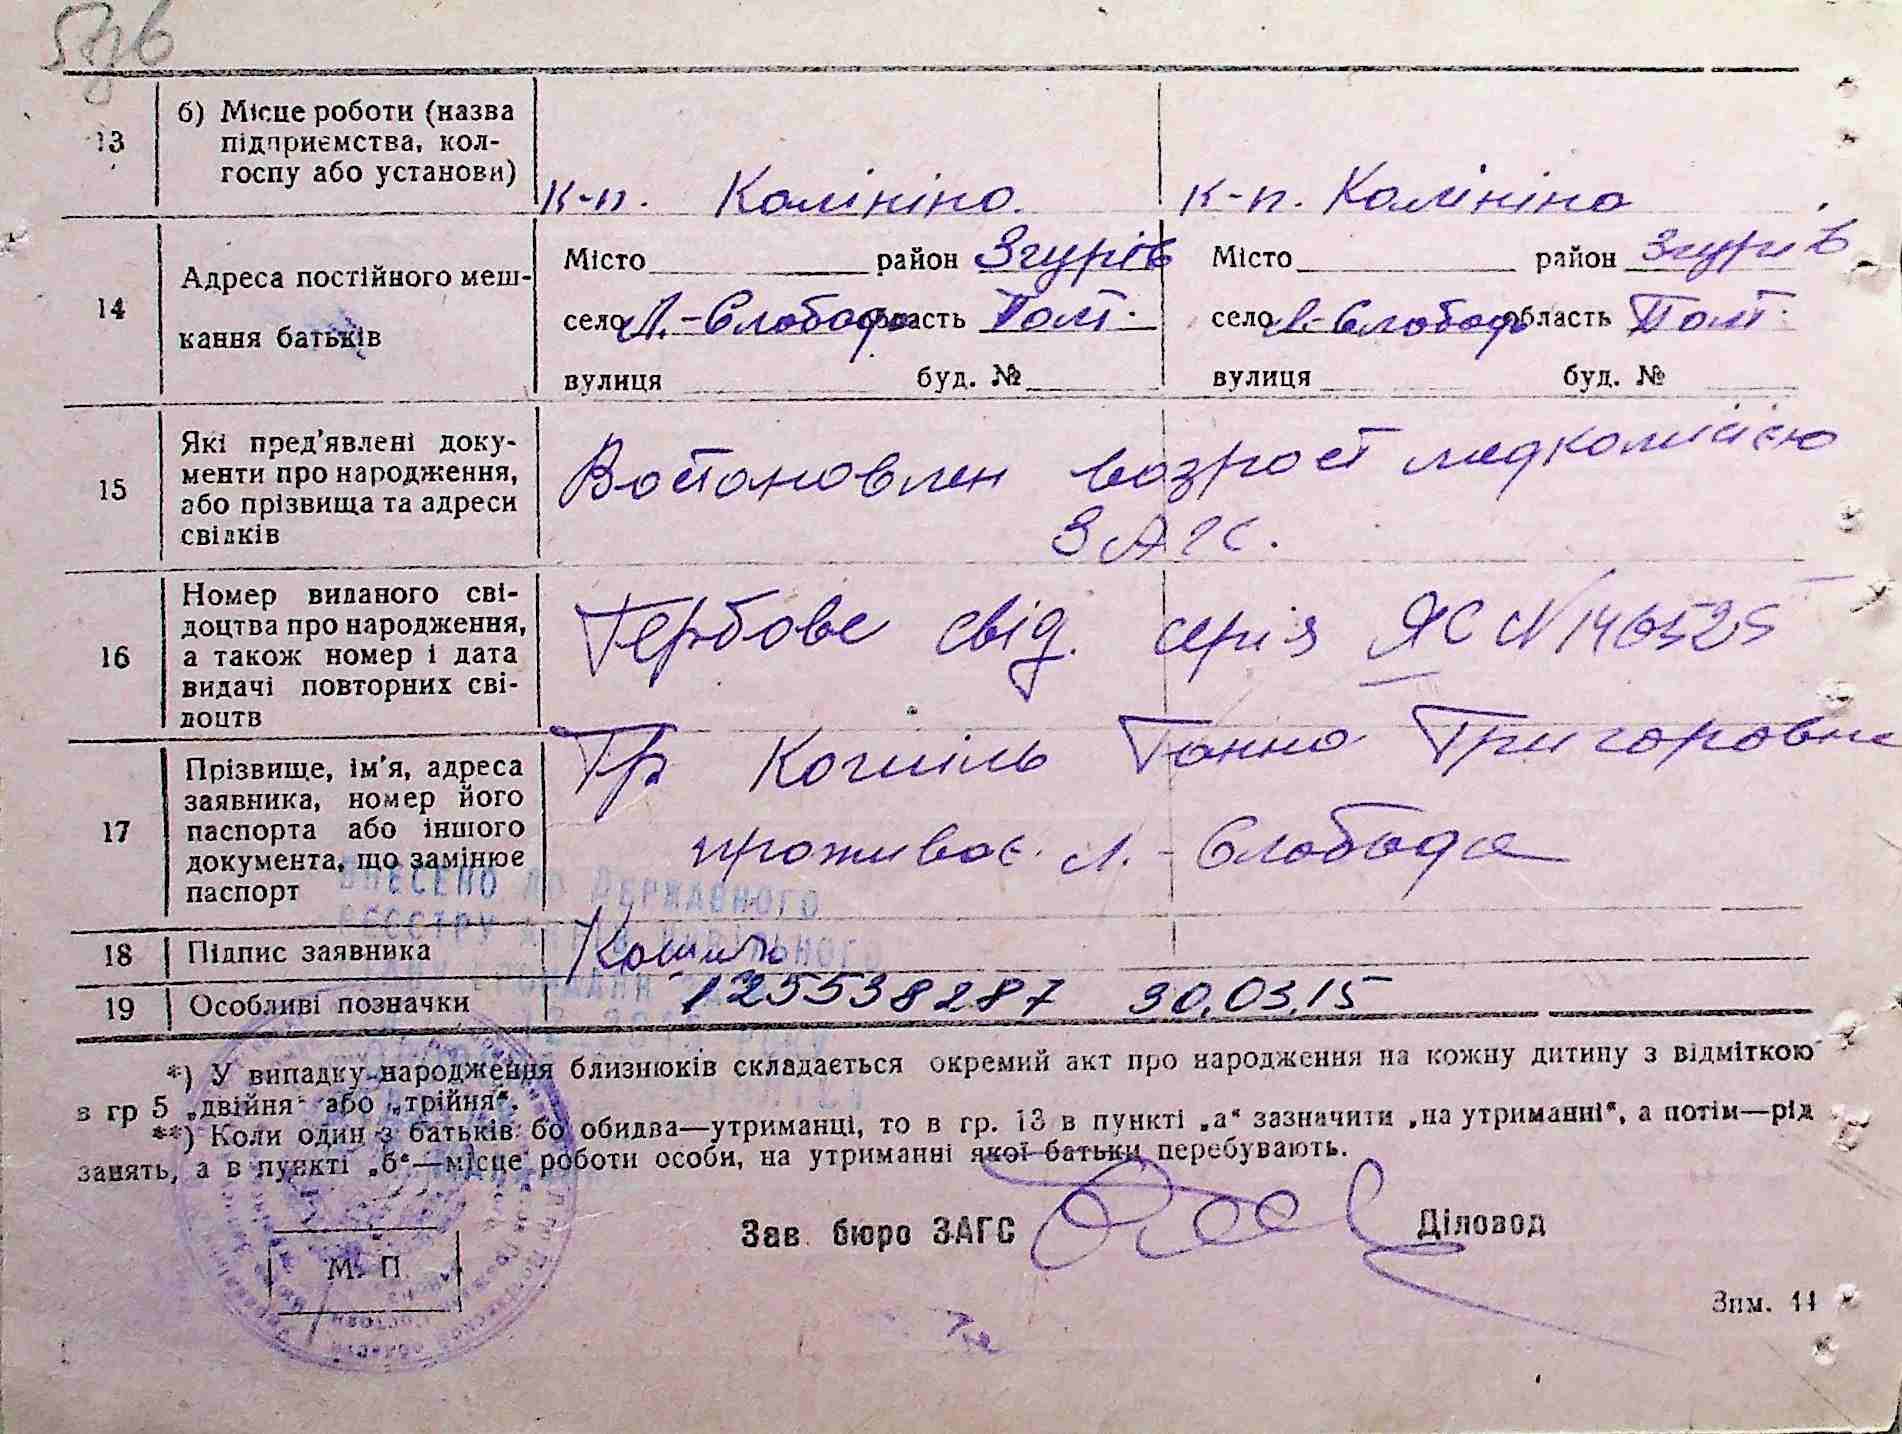 13
б) Місце роботи (назва
підприємства, кол-
госпу або установи)
к-п. Калініна.
к-п. Калініна
14
Адреса постійного меш-
кання батьків
Місто район Згурів
село Л.-Слобода область Полт.
вулиця буд. №
Місто район Згурів
село Л.-Слобода область Полт.
вулиця буд. №
15
Які пред'явлені доку-
менти про народження,
або прізвища та адреси
свідків
Востановлен возраст медкомісією
ЗАГС.
16
Номер виданого сві-
доцтва про народження,
а також номер і дата
видачі повторних сві-
доцтв
Гербове свід. серія ЯС №146525
17
Прізвище, ім'я, адреса
заявника, номер його
паспорта або іншого
документа, що замінює
паспорт
Гр Кошіль Ганна Григоровна
проживає Л.-Слобода
ВНЕСЕНО ДО ДЕРЖАВНОГО
РЕЄСТРУ АКТІВ ЦИВІЛЬНОГО
18
Підпис заявника
Кошиль
19
Особливі позначки
125538287 30.03.15
*) У випадку народження близнюків складається окремий акт про народження на кожну дитину з відміткою
в гр 5 „двійня“ або „трійня“.
**) Коли один з батьків бо обидва—утриманці, то в гр. 13 в пункті „а“ зазначити „на утриманні“, а потім—рід
занять, а в пункті „б“—місце роботи особи, на утриманні якої батьки перебувають.
Зав. бюро ЗАГС
Діловод
М. П.
Зпм. 44